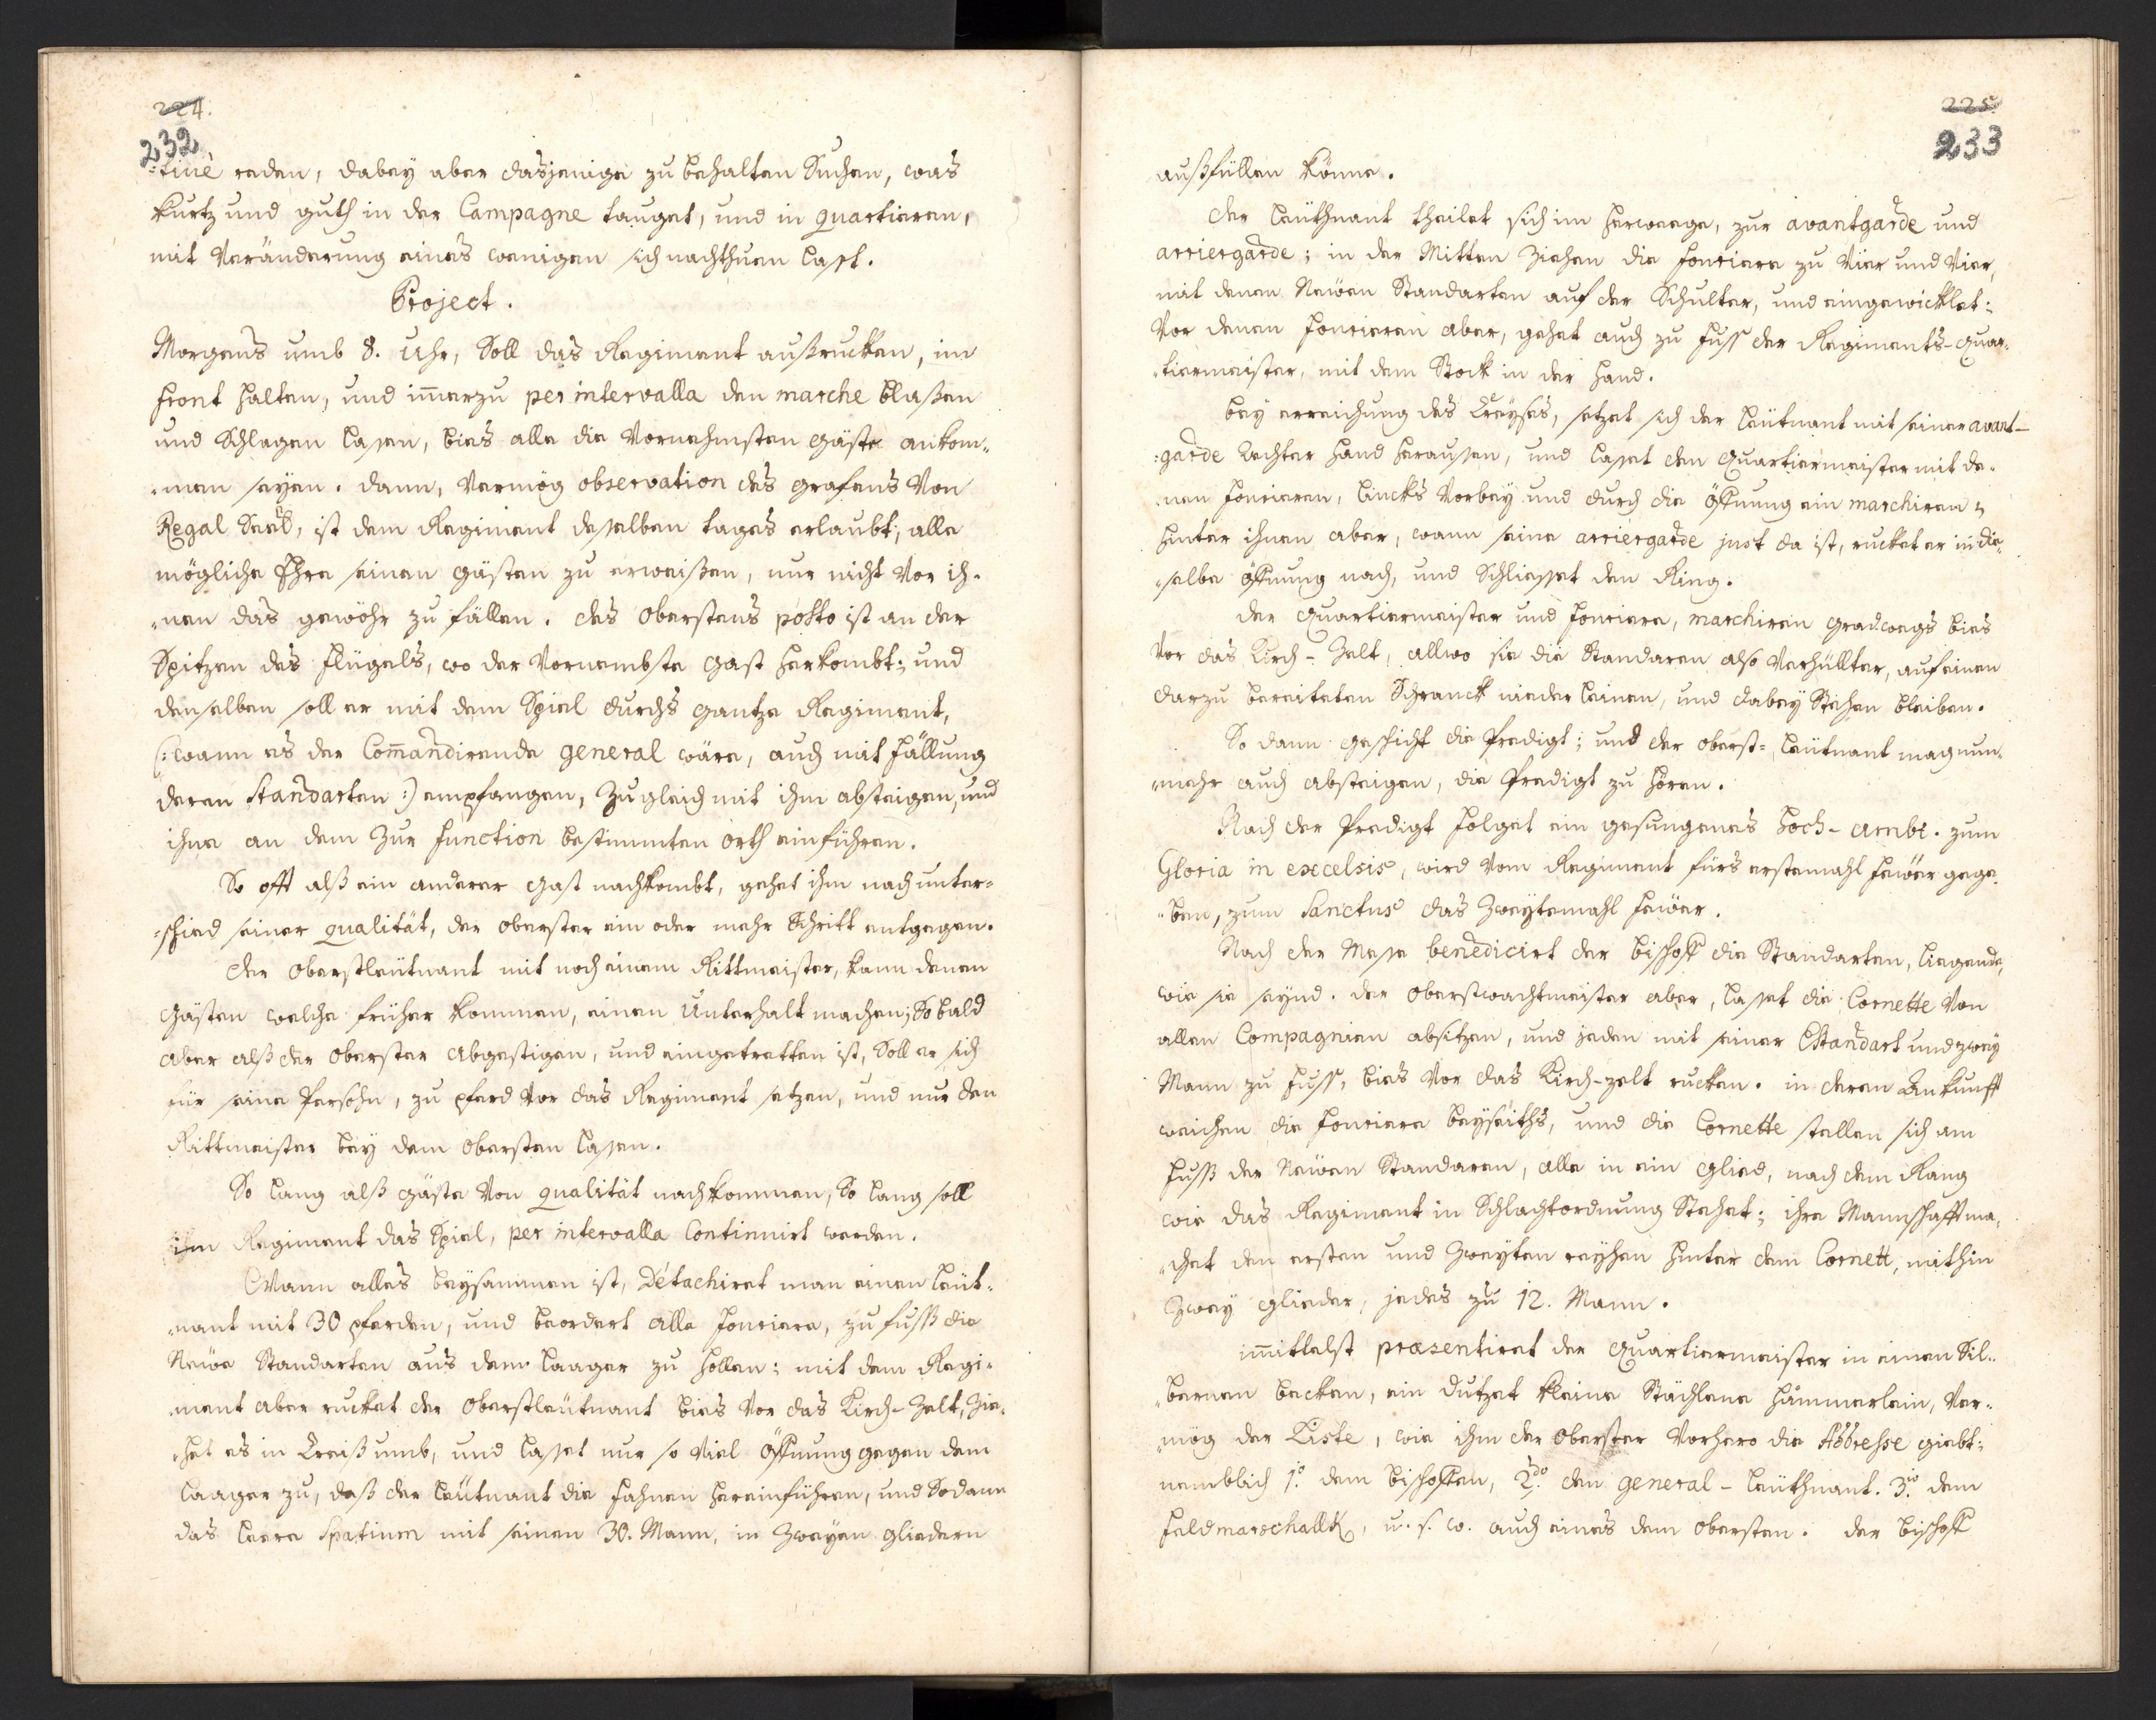 224.
232
:tinè reden, dabey aber dasjenige zu behalten Suchen, was
kurtz und guth in der Campagne tauget, und in quartieren,
mit Veränderung eines wenigen sich nachthuen lasst.
Project.
Morgens umb 8. Uhr, Soll das Regiment außrucken, in
front halten, und im̄erzu per intervalla den marche blaßen
und Schlagen lassen, bies alle die Vornehmsten Gäste ankom-
-men seyen. dann, Vermög observation des grafens Von
Regal Seel, ist dem Regiment desselben tages erlaubt, alle
mögliche Ehre seinen Gästen zu erweißen, nur nicht Vor ih-
-nen das gewöhr zu fällen. des Obersten posto ist an der
Spitzen des Flügels, wo der Vornembste Gast herkombt; und
denselben soll er mit dem Spiel durchs gantze Regiment,
(: wann es der Com̄andirende general wäre, auch mit fällung
deren Standarten :) empfangen, zu gleich mit ihm absteigen, und
ihne an dem zur function bestimmten orth einführen.
So offt alß ein anderer Gast nachkombt, gehet ihm nach unter-
-schied seiner qualität, der Oberster ein oder mehr Schritt entgegen.
Der Oberstleütnant mit noch einem Rittmeister, kann denen
Gästen welche früher kommen, einen Unterhalt machen; So bald
aber alß der Oberster abgestigen, und eingetretten ist, Soll er sich
für seine Persohn, zu pferd Vor das Regiment setzen, und nur den
Rittmeister bey dem Obersten lassen.
So lang alß Gäste Von qualität nachkommen, So lang soll
im Regiment das Spiel, per intervalla Continuirt werden.
Wann alles beysammen ist, Détachiret man einen leüt-
-nant mit 30 pferden, und beordert alle fouriere, zu fuß die
Neüe Standarten aus dem laager zu hollen: mit dem Regi-
-ment aber rucket der Oberstleütnant bies Vor das Kirch-Zelt, Zie-
-het es in Creiß umb, und lasset nur so Viel öffnung gegen dem
laager zu, daß der leütnant die fahnen hereinführen, und Sodann
das leere Spatium mit seinen 30. Mann, in Zweyen gliedern
225.
233
außfüllen könne.
Der leüthnant theilet sich im herweege, zur avantgarde und
arriergarde; in der Mitten ziehen die fouriere zu Vier und Vier,
mit denen Neüen Standarten auf der Schulter, und eingewicklet:
Vor denen fourieren aber, gehet auch zu fuss der Regiments-quar-
-tiermeister, mit dem Stock in der hand.
bey erreichung des Creyses, setzet sich der leütnant mit seiner avant-
:garde Rechter hand heraussen, und lasset den Quartiermeister mit de-
-nen fourieren, lincks Vorbey und durch die öffnung ein marchiren;
hinter ihnen aber, wann seine arriergarde just da ist, rucket er in die-
-selbe öffnung nach, und Schliesset den Ring.
Der Quartiermeister und fouriere, marchiren gradwegs bies
Vor das Kirch-Zelt, allwo sie die Standaren also Verhüllter, auf einen
darzu bereiteten Schranck nieder leinen, und dabey Stehen bleiben.
So dann geschicht die Predigt; und der Oberst-leütnant mag nun-
-mehr auch absteigen, die Predigt zu hören.
Nach der Predigt folget ein gesungenes hoch-ambt. zum
Gloria in excelsis, wird Vom Regiment fürs erstemahl feüer gege-
-ben, zum Sanctus das Zweytemahl feüer.
Nach der Messe benedicirt der bischoff die Standarten, liegende,
wie sie seynd. der Oberstwachtmeister aber, lasset die Cornette Von
allen Compagnien absitzen, und jeden mit seiner Estandart und zwey
Mann zu fuss, bies Vor das Kirch-zelt rucken. in deren Ankunfft
weichen die fouriere beyseiths, und die Cornette stellen sich am
fuss der Neüen Standaren, alle in ein glied, nach dem Rang
wie das Regiment in Schlachtordnung Stehet; ihre Mannschafft ma-
-chet den ersten und Zweyten reyhen hinter dem Cornett, mithin
Zwey glieder, jedes zu 12. Mann.
im̄ittelst præsentiret der Quartiermeister in einen Sil-
-bernen becken, ein dutzet kleine Stächlene hämmerlein, Ver-
-mög der Liste, wie ihm der Oberster Vorhero die Addresse giebt:
nemblich 1.mo dem bischoffen, 2.do den general-leüthnant. 3.tio dem
feldmarschallk, u. s. w. auch eines dem Obersten. der bischoff